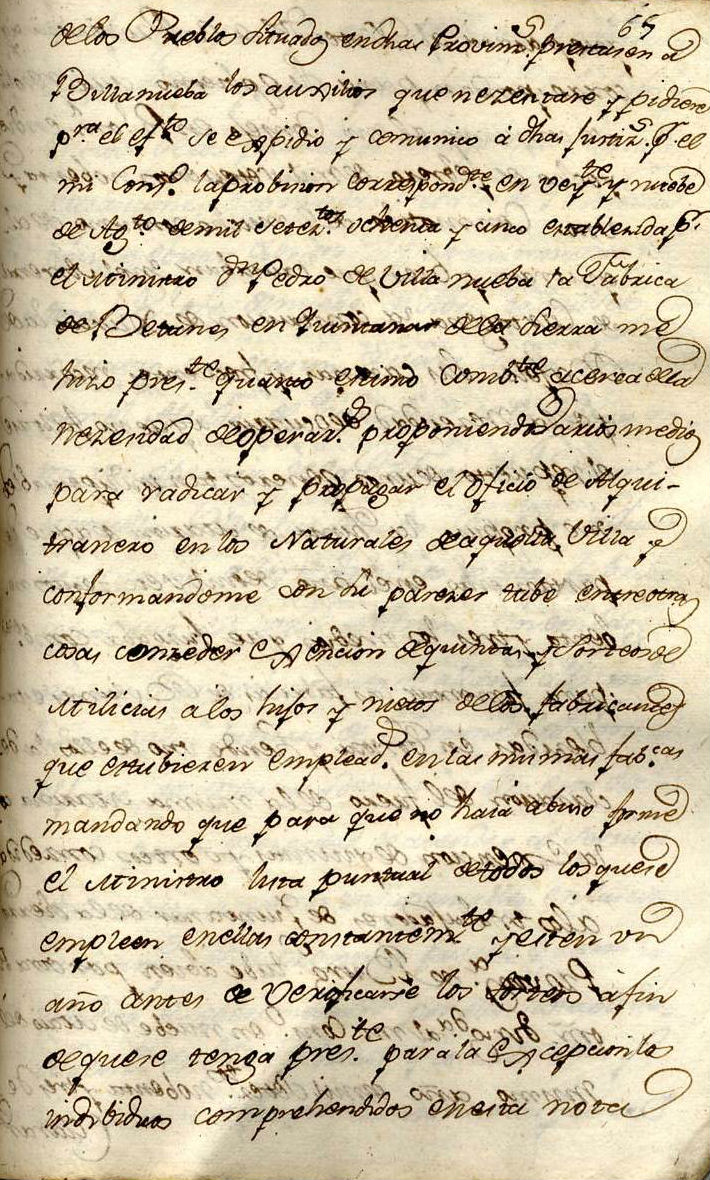 65
de los Pueblos situados en dhas Provinas. prestasen a
Billanueba los auxilios que nezesitare y pidiere
pra. el efto. se expidio y comunico á dhas Justizs. pr. el
mi Consº. la probision correspondte. en veyte. y nuebe
de Agto. de mil setezos. ochenta y cinco establezida pr.
el Ministro dn. Pedro de Villanueba la Fabrica
de Betunes en Quintanar de la Sierra me
hizo preste. quanto estimó combte. acerca de la
nezesidad de operars. proponiendo varios medios
para radicar y propagar el oficio de Alqui-
tranero en los Naturales de aquella Villa y
conformandome con su parezer tube entre otras
cosas conzeder Exencion de quintas, y Sorteos de
Milicias a los hijos y nietos de los fabricantes
que estubieren empleads. en las mismas fabcas
mandando que para que no haia abuso forme
el Ministro lista puntual de todos los que se
empleen en ellas constantemte. y esten un
año antes de Verificarse los sorteos a fin
de que se tenga preste. para la Excepcion los
indibiduos comprehendidos en esta nota